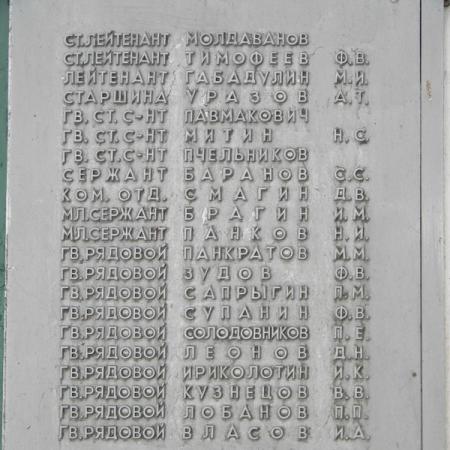 СТ.ЛЕЙТЕНАНТ МОЛДАВАНОВ
СТ.ЛЕЙТЕНАНТ ТИМОФЕЕВ Ф.В.
ЛЕЙТЕНАНТ ГАБАДУЛИН М.И.
СТАРШИНА УРАЗОВ А.Т.
ГВ. СТ. С-НТ ПАВМАКОВИЧ
ГВ. СТ. С-НТ МИТИН Н.С.
ГВ. СТ. С-НТ ПЧЕЛЬНИКОВ
СЕРЖАНТ БАРАНОВ С.С.
КОМ. ОТД. СМАГИН Д.В.
МЛ.СЕРЖАНТ БРАГИН И.М.
МЛ.СЕРЖАНТ ПАНКОВ Н.И.
ГВ.РЯДОВОЙ ПАНКРАТОВ М.М.
ГВ.РЯДОВОЙ ЗУДОВ Ф.В.
ГВ.РЯДОВОЙ САПРЫГИН П.М.
ГВ.РЯДОВОЙ СУПАНИН Ф.В.
ГВ.РЯДОВОЙ СОЛОДОВНИКОВ П.Е.
ГВ.РЯДОВОЙ ЛЕОНОВ Д.Н.
ГВ.РЯДОВОЙ ИРИКОЛОТИН И.К.
ГВ.РЯДОВОЙ КУЗНЕЦОВ В.В.
ГВ.РЯДОВОЙ ЛОБАНОВ П.П.
ГВ.РЯДОВОЙ ВЛАСОВ И.А.